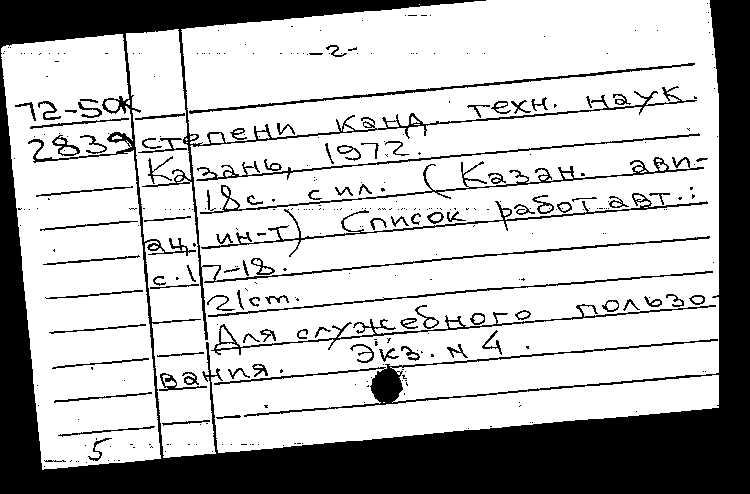 -2-
72-50К
2839 степени канд. техн. наук.
Казань, 1972.
18с. с ил. (Казан. ави-
ац. ин-т) Список работ авт.:
с. 17-18.
21см.
Для служебного пользо-
вания. Экз. N 4.
5